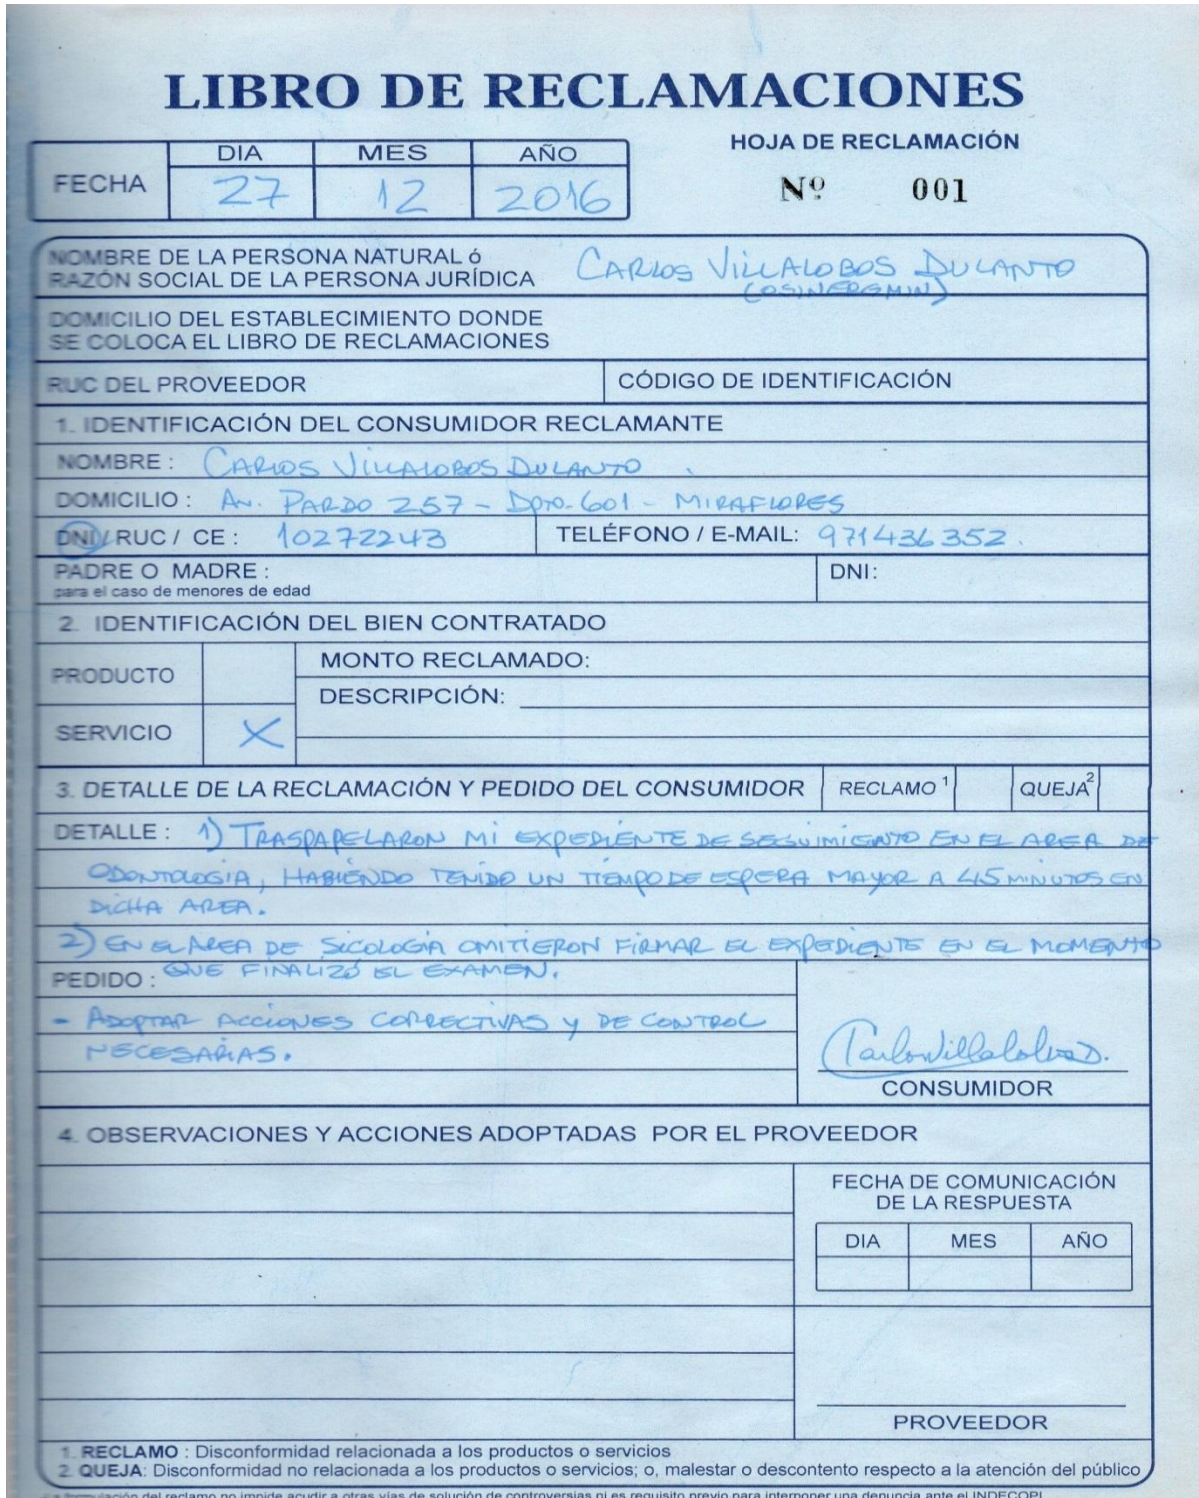 LIBRO DE RECLAMACIONES
HOJA DE RECLAMACIÓN
Nº 001
FECHA DIA MES AÑO
27 12 2016
NOMBRE DE LA PERSONA NATURAL ó
RAZÓN SOCIAL DE LA PERSONA JURÍDICA
CARLOS VILLALOBOS DULANTO
(OSINERGMIN)
DOMICILIO DEL ESTABLECIMIENTO DONDE
SE COLOCA EL LIBRO DE RECLAMACIONES
RUC DEL PROVEEDOR CÓDIGO DE IDENTIFICACIÓN
1. IDENTIFICACIÓN DEL CONSUMIDOR RECLAMANTE
NOMBRE : CARLOS VILLALOBOS DULANTO.
DOMICILIO : AV. PARDO 257 - DPTO. 601 - MIRAFLORES
DNI / RUC / CE : 10272243 TELÉFONO / E-MAIL: 971436352.
PADRE O MADRE : DNI:
para el caso de menores de edad
2. IDENTIFICACIÓN DEL BIEN CONTRATADO
PRODUCTO MONTO RECLAMADO:
DESCRIPCIÓN:
SERVICIO X
3. DETALLE DE LA RECLAMACIÓN Y PEDIDO DEL CONSUMIDOR RECLAMO 1 QUEJA 2
DETALLE : 1) TRASPAPELARON MI EXPEDIENTE DE SEGUIMIENTO EN EL AREA DE
ODONTOLOGÍA, HABIENDO TENIDO UN TIEMPO DE ESPERA MAYOR A 45 MINUTOS EN
DICHA AREA.
2) EN EL AREA DE SICOLOGÍA OMITIERON FIRMAR EL EXPEDIENTE EN EL MOMENTO
QUE FINALIZÓ EL EXAMEN.
PEDIDO :
- ADOPTAR ACCIONES CORRECTIVAS Y DE CONTROL
NECESARIAS.
Carlos Villalobos D.
CONSUMIDOR
4. OBSERVACIONES Y ACCIONES ADOPTADAS POR EL PROVEEDOR
FECHA DE COMUNICACIÓN
DE LA RESPUESTA
DIA MES AÑO
PROVEEDOR
1. RECLAMO : Disconformidad relacionada a los productos o servicios
2. QUEJA: Disconformidad no relacionada a los productos o servicios; o, malestar o descontento respecto a la atención del público
La formulación del reclamo no impide acudir a otras vías de solución de controversias ni es requisito previo para interponer una denuncia ante el INDECOPI